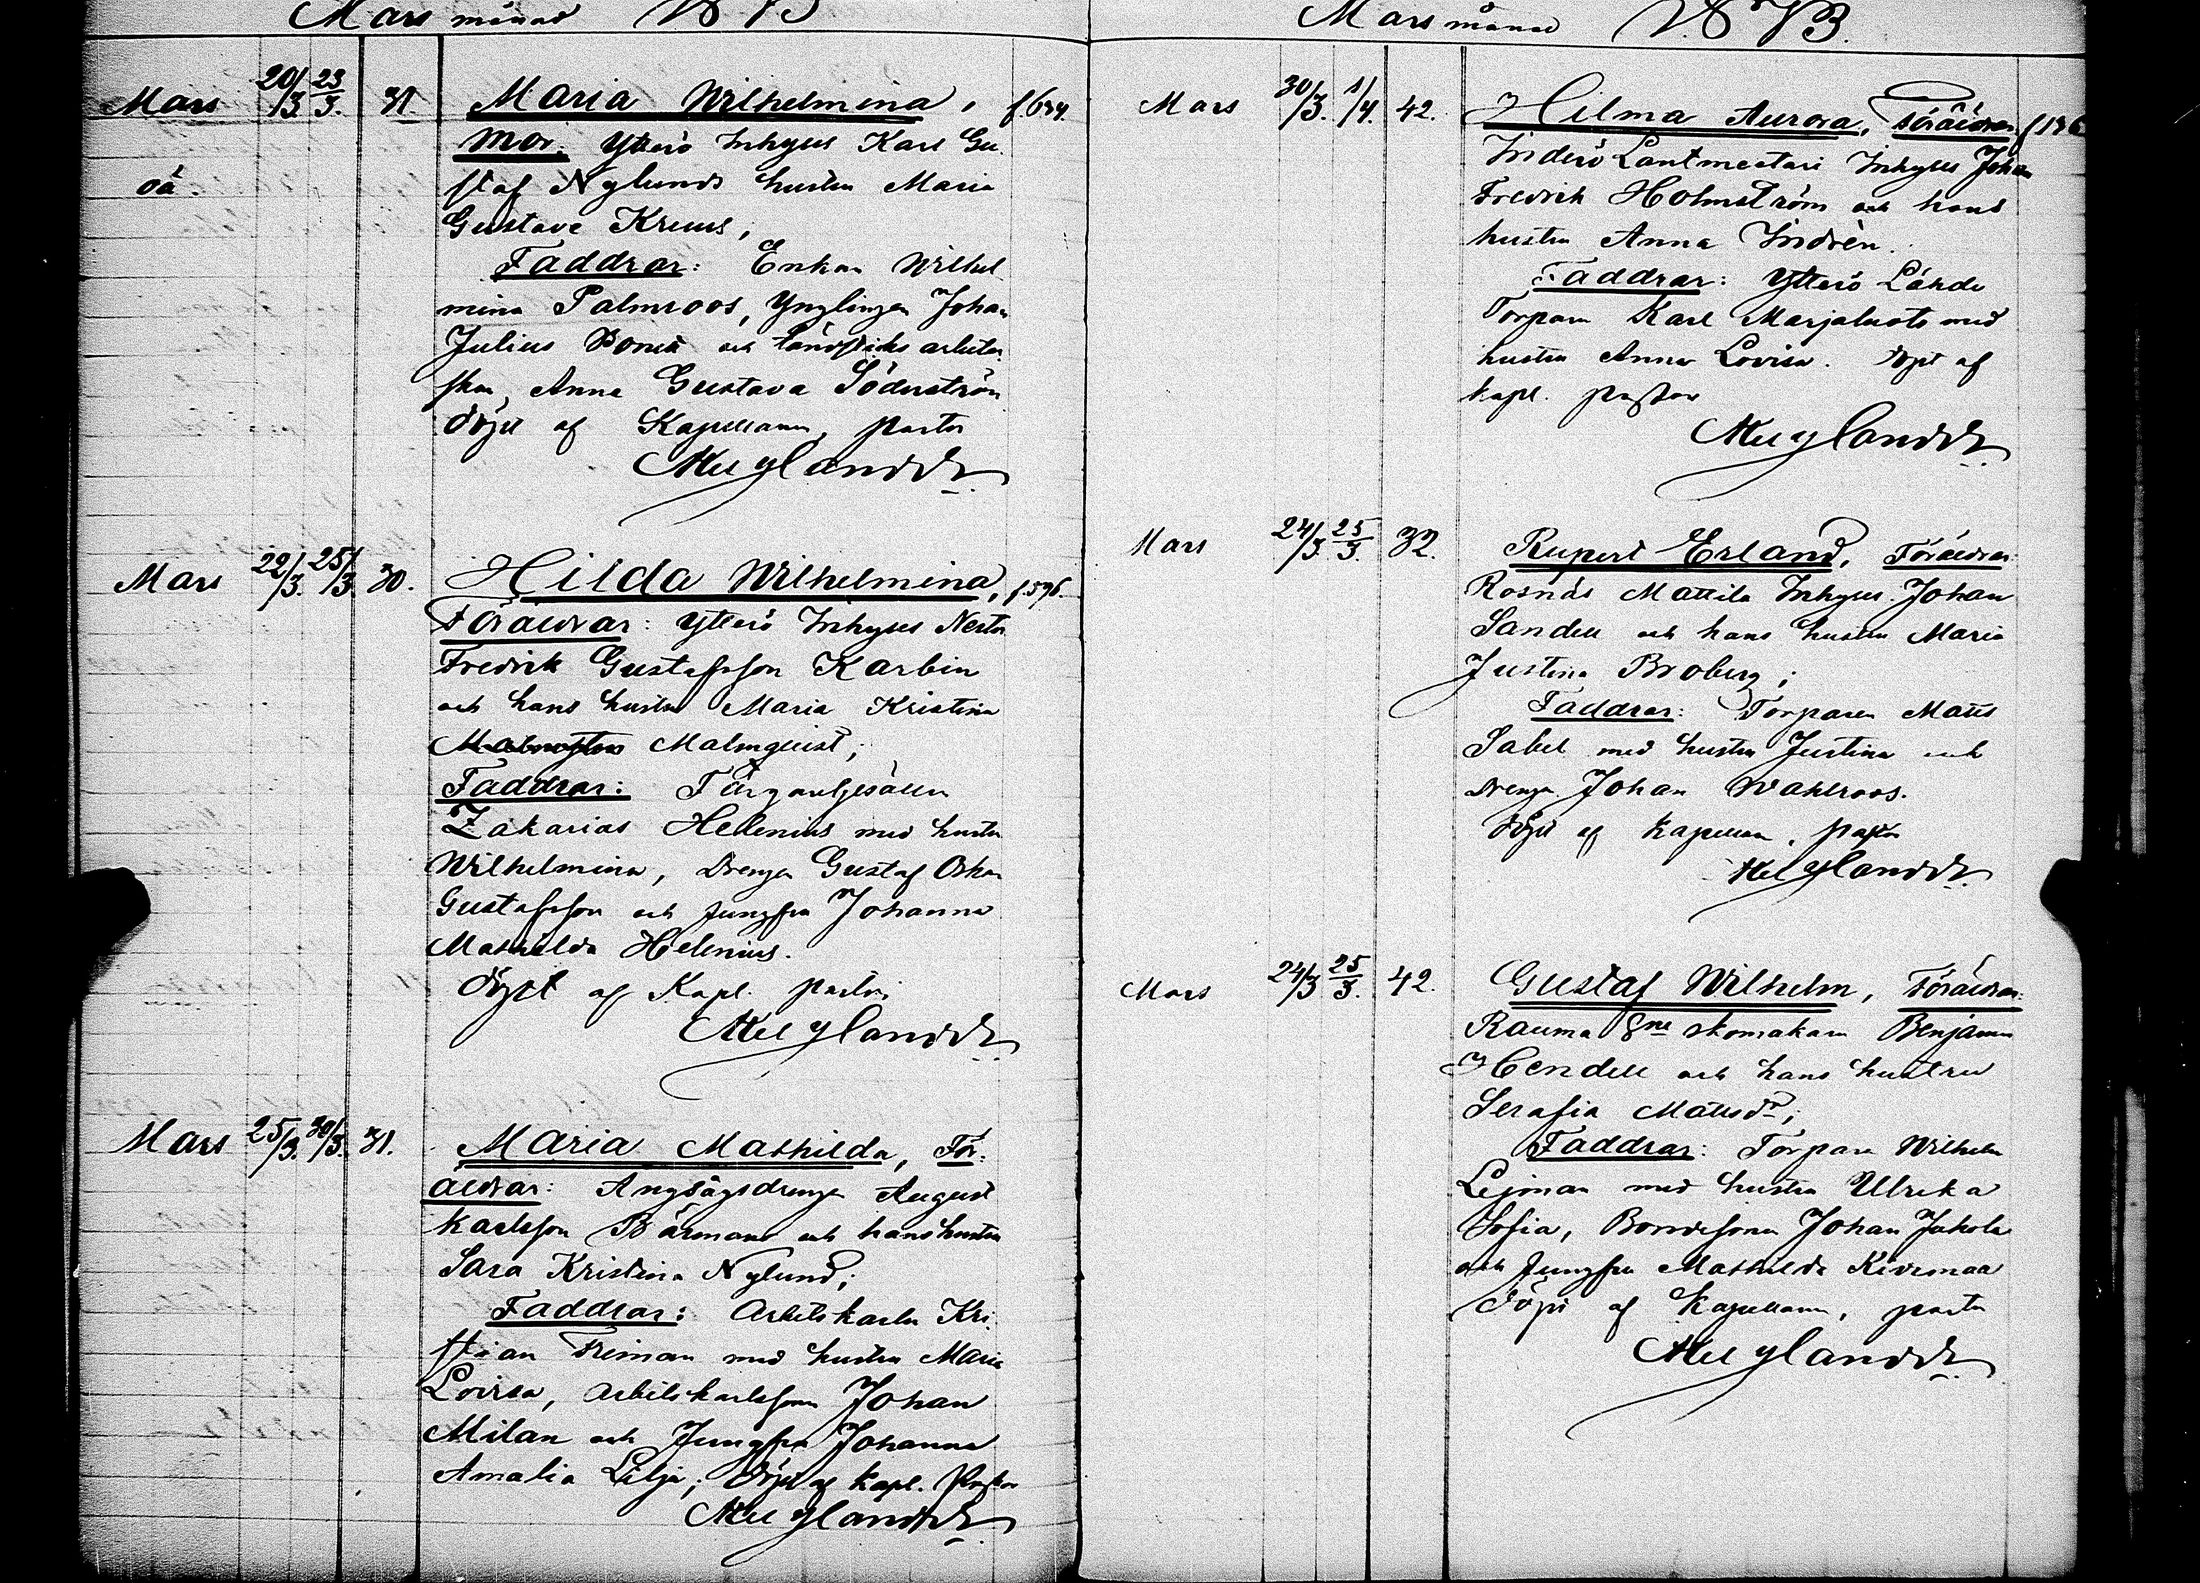 Mars månad 1873
Mars 20/3. 23/3. 31. Maria Wilhelmina,
oä. Mor: Ytterö Inhyses Karl Gu
staf Nylunds hustru Maria
Gustava Kruus,
Faddrar: Enkan Wilhel
mina Palmroos, Ynglingen Johan
Julius och tändsticks arbeter
skan Anna Gustava Söderström
Döpt af Kapellanen, pastor
Mars 22/3. 25/3. 30. Hilda Wilhelmina, f. 596.
Föräldrar: Ytterö Inhyses Nestor
Fredrik Gustafsson Karbin
och hans hustru Maria Kristina
Malmquist;
Faddrar: Färgaregesällen
Zakarias Helenius med hustru
Wilhelmina, Drengen Gustaf Oskar
Gustafsson och Jungfru Johanna
Mathilda Helenius.
Döpt af Kapl. pastor
Mars 25/3. 30/3. 31. Maria Mathilda, För:
äldrar: Ångsågsdrengen August
Karlsson Bärman och hans hustru
Sara Kristina Nylund;
Faddrar: Arbetskarlen Kri
stian Friman med hustru Maria
Lovisa, arbetskarlssonen Johan
Milan och Jungfru Johanna
Amalia Lilja; Döpt af Kapl. Pastor
Mars månad 1873.
Mars 30/3. 1/4. 42. Hilma Aurora, Föräldrar
Inderö Lantmeetari Inhyses Johan
Fredrik Holmström och hans
hustru Anna Indrén.
Faddrar: Ytterö Lähde
Torparen Karl Marjaluoto med
hustru Anna Lovisa. Döpt af
kapl. pastor
Mars 24/3. 25/3. 32. Rupert Erland, Föräldrar:
Rosnäs Mattila Inhyses Johan
Sandell och hans hustru Maria
Justina Broberg;
Faddrar: Torparen Matts
Sabel med hustru Justina och
Drengen Johan Wahlroos.
Döpt af kapellan, pastor
Mars 24/3 25/3. 42. Gustaf Wilhelm, Föräldrar:
Rauma skomakaren Benjamin
Hendell och hans hustru
Serafia Mattsdr;
Faddrar: Torparen Wilhelm
Lejman med hustru Ulrika
Sofia, Bondesonen Johan Jakola
och Jungfru Mathilda Kivimaa
Döpt af Kapellanen, pastor